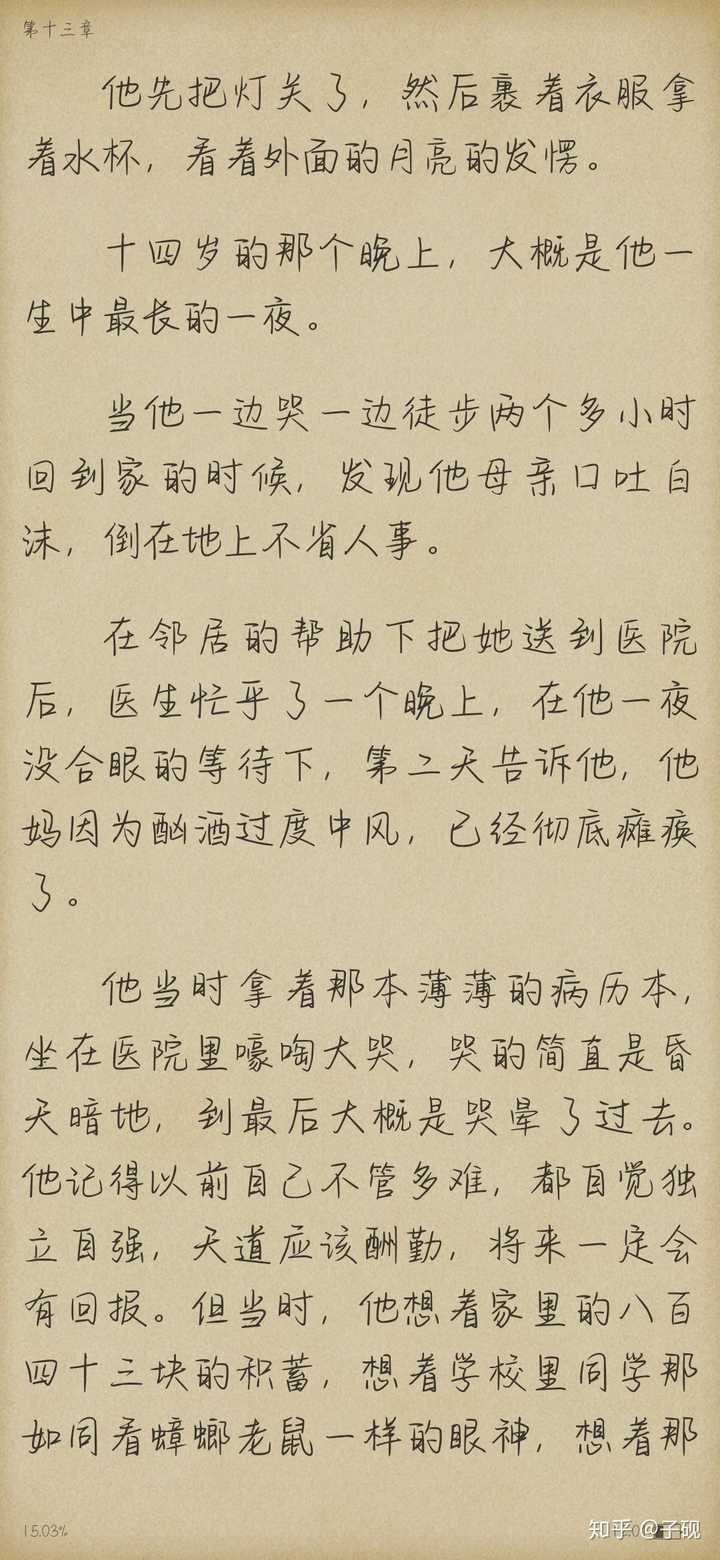 第十三章
他先把灯关了，然后裹着衣服拿
着水杯，看着外面的月亮的发愣。
十四岁的那个晚上，大概是他一
生中最长的一夜。
当他一边哭一边徒步两个多小时
回到家的时候，发现他母亲口吐白
沫，倒在地上不省人事。
在邻居的帮助下把她送到医院
后，医生忙乎了一个晚上，在他一夜
没合眼的等待下，第二天告诉他，他
妈因为酗酒过度中风，已经彻底瘫痪
了。
他当时拿着那本薄薄的病历本，
坐在医院里嚎啕大哭，哭的简直是昏
天暗地，到最后大概是哭晕了过去。
他记得以前自己不管多难，都自觉独
立自强，天道应该酬勤，将来一定会
有回报。但当时，他想着家里的八百
四十三块的积蓄，想着学校里同学那
如同看蟑螂老鼠一样的眼神，想着那
15.03%
知乎 @子砚